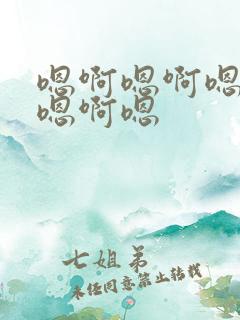 嗯啊嗯啊嗯
嗯啊嗯
七姐弟
未经同意禁止转载